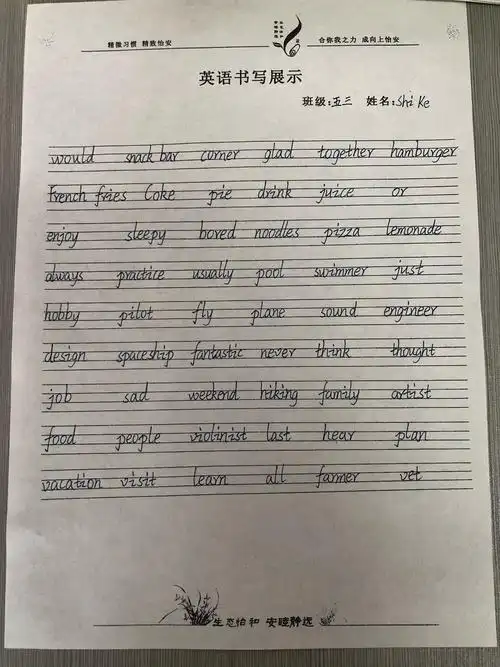 精微习惯 精致怡安
合你我之力 成向上怡安
英语书写展示
班级:五三 姓名:Shi Ke
would snack bar corner glad together hamburger
French fries Coke pie drink juice or
enjoy sleepy bored noodles pizza lemonade
always practice usually pool swimmer just
hobby pilot fly plane sound engineer
design spaceship fantastic never think thought
job sad weekend hiking family artist
food people violinist last hear plan
vacation visit learn all farmer vet
生态怡和 安暖静远